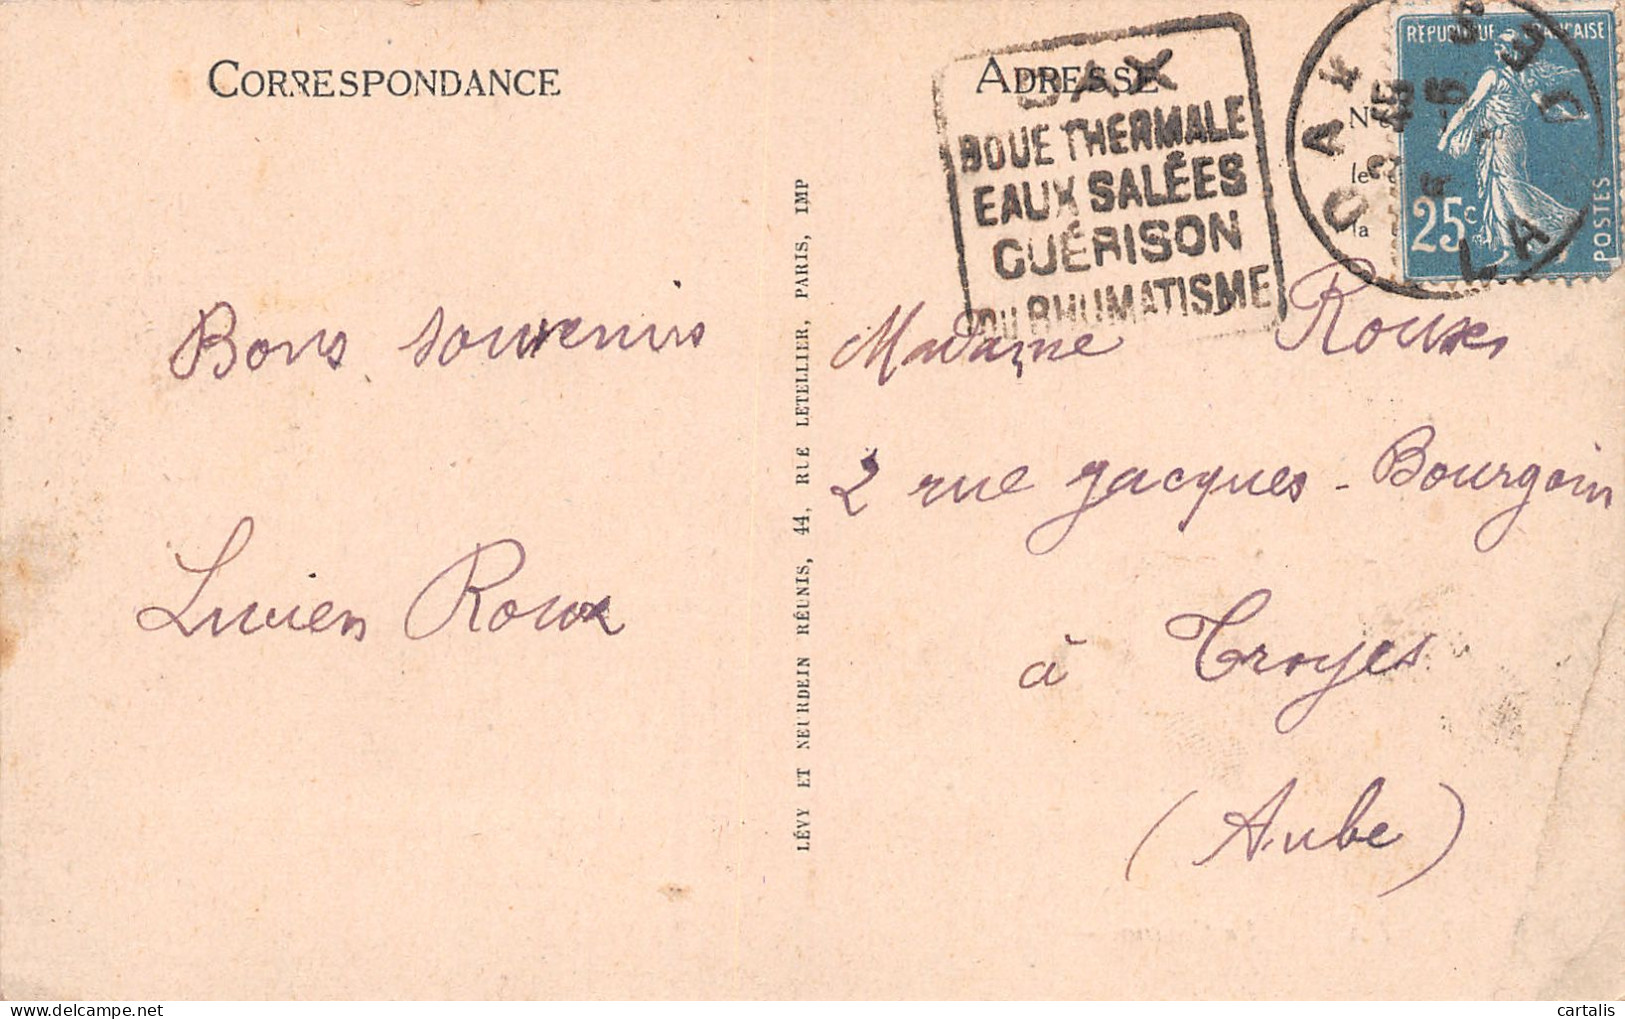 CORRESPONDANCE
Bons souvenirs
Lucien Roux
LÉVY ET NEURDEIN RÉUNIS, 44, RUE LETELLIER, PARIS, IMP
ADRESSE
DAX
BOUE THERMALE
EAUX SALÉES
GUÉRISON
DU RHUMATISME
DAX
RÉPUBLIQUE FRANÇAISE
25c
POSTES
le
la
Madame Roux
2 rue Jacques-Bourgoin
à Troyes
(Aube)
cartalis
delcampe.net